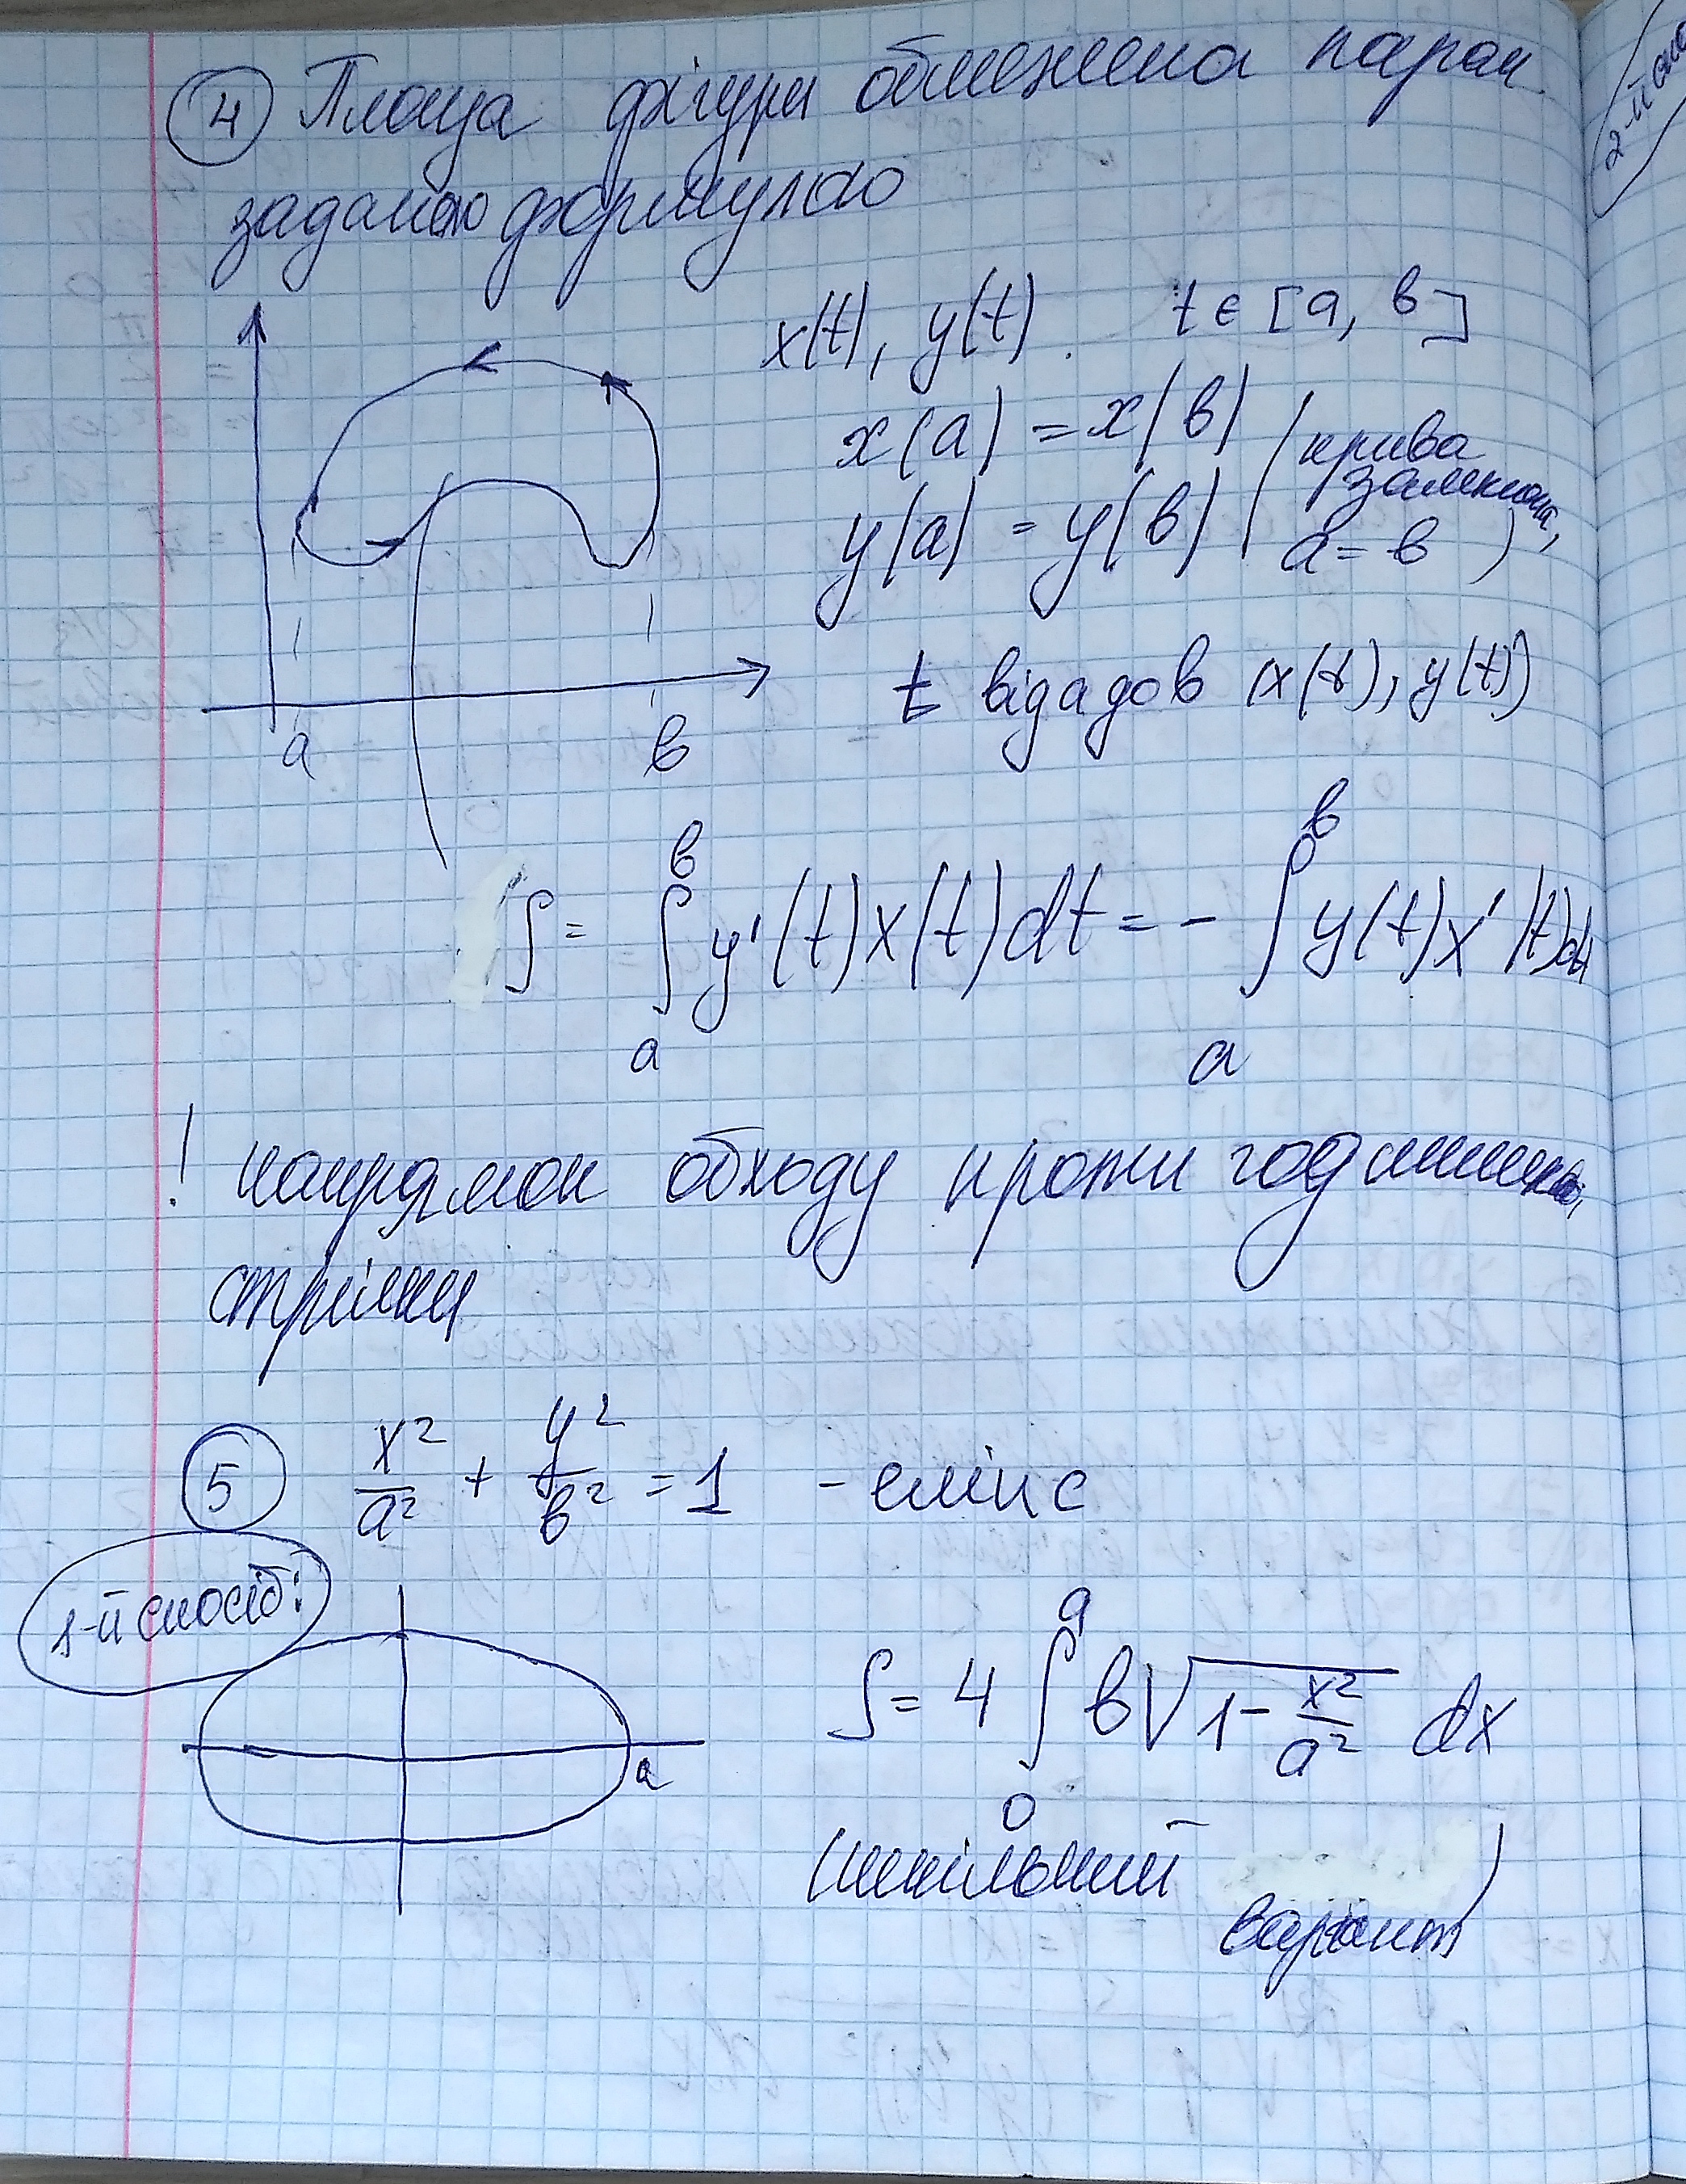 ④ Площа фігури обмежена парам.
заданою формулою
x(t), y(t). t ∈ [a, в]
x(a) = x(в) (крива
замкнена,
y(a) = y(в) a = в)
a в
t відадов (x(t), y(t))
S = ∫ₐᵇ y'(t)x(t)dt = - ∫ₐᵇ y(t)x'(t)dt
! напрямок обходу проти годинникові
стрілки
⑤ x²/a² + y²/в² = 1 - еліпс
1-й спосіб:
a
S = 4 ∫₀ᵃ в√(1 - x²/a²) dx
(шкільний
варіант)
2-й